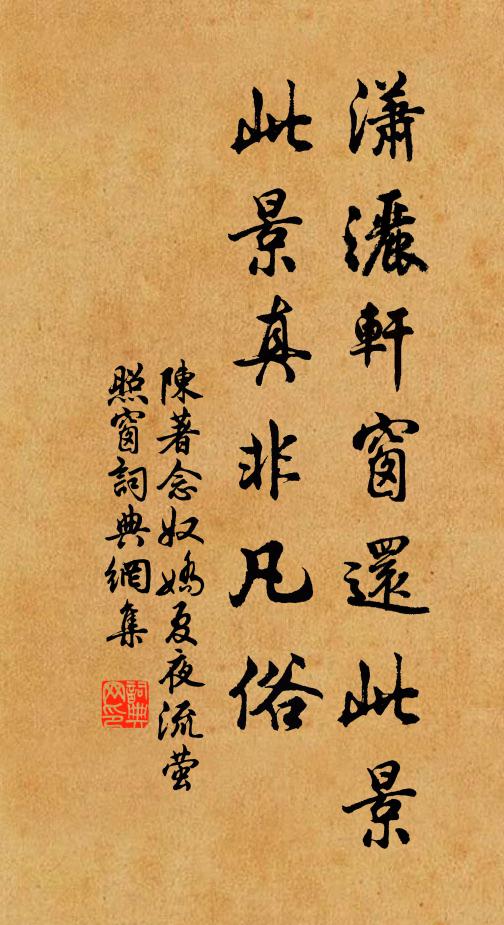 瀟灑軒窗還此景
此景真非凡俗
陳著念奴嬌夏夜流螢
照窗詞典網集
詞典网印